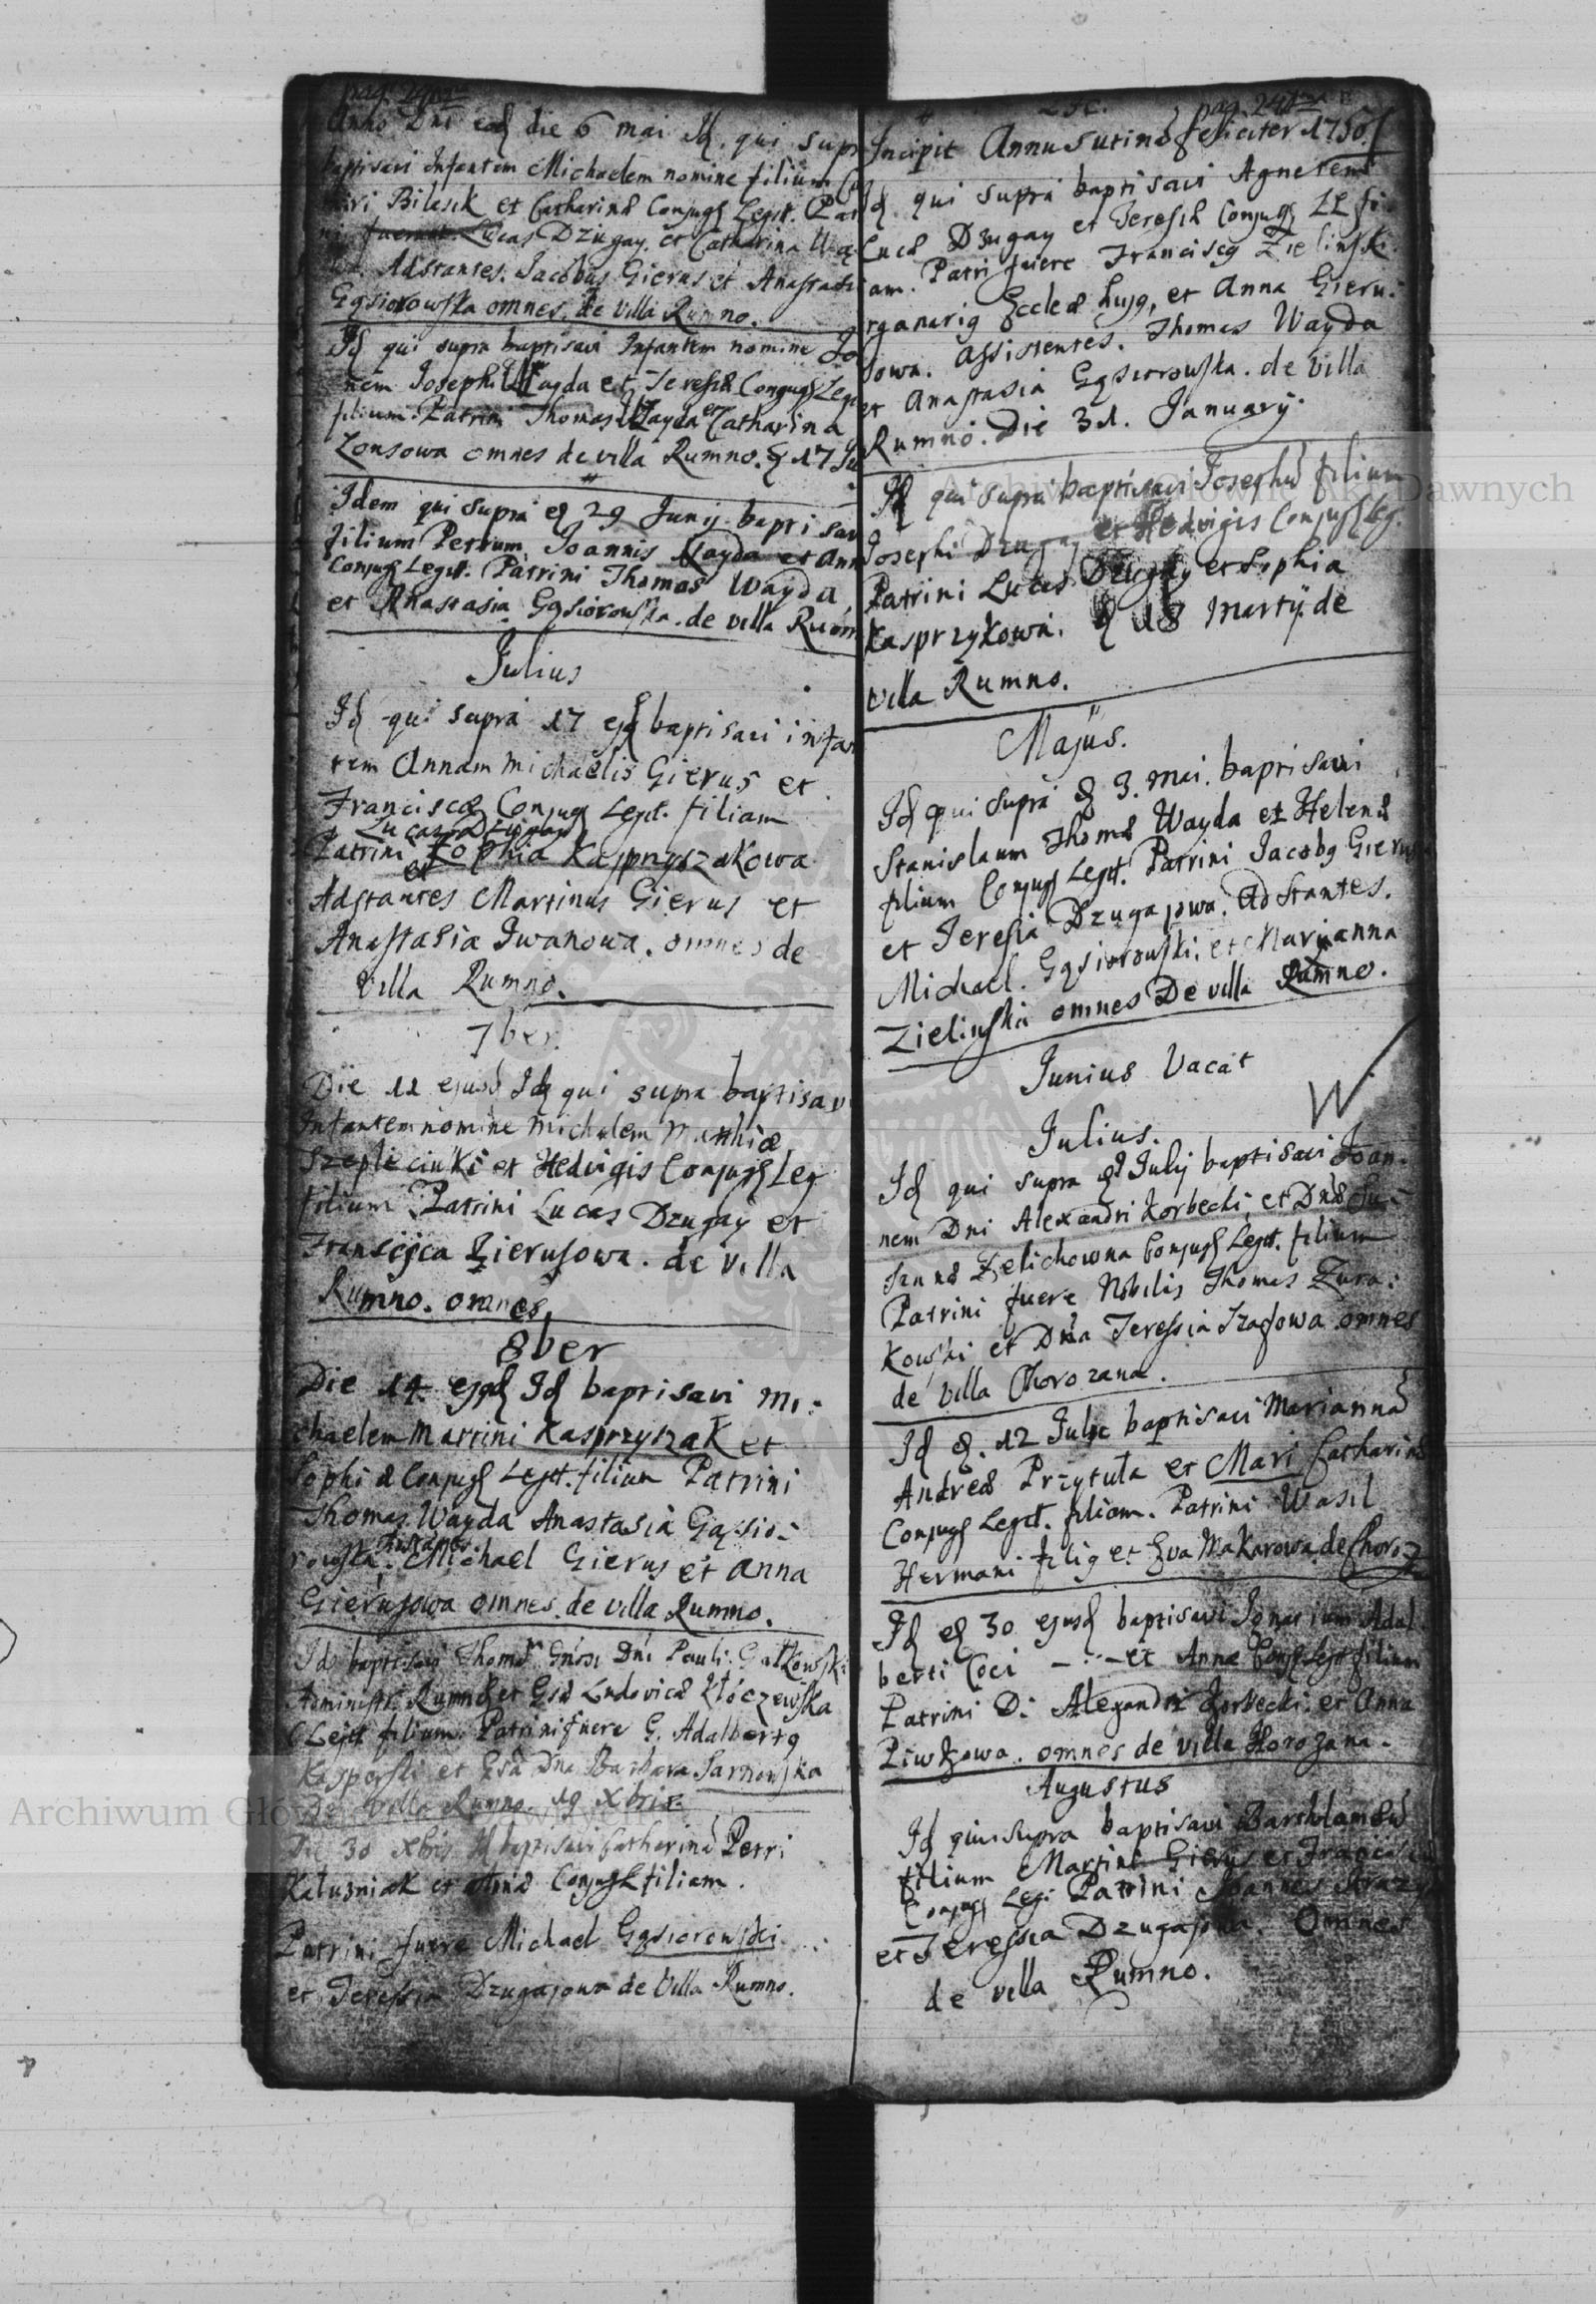 Anno Dni eod die 6 mai Id. qui supr
baptisavi Infantem Michaelem nomine filium
Bilesik et Catharina Conjug Legit. Pat
fuerunt. Lucas Dziugay. et Catharina
Adstantes. Jacobus Gierus et Anastasi
Gąsiorowska omnes. de Villa Rumno.
Id qui supra baptisavi Infantem nomine Jo
nem Josephi Wayda et Teresiæ Conjug Leg
filium. Patrini Thomas Wayda et Catharina
Zonsowa omnes de villa Rumno. 17
Idem qui supra 29 Junij baptisav
filium Petrum Joannis Wayda et Ann
Conjug Legit. Patrini Thomas Wayda
et Anastasia Gąsiorowska. de villa Rumn
Julius
Id qui supra 17 ejd baptisavi infan
tem Annam Michaelis Gierus et
Franciscæ Conjug Legit. filiam
Lucas Dziugay
Patrini et Zophia Kasprzyszakowa
Adstantes Martinus Gierus et
Anastasia Iwanowa. omnes de
Villa Rumno.
7ber.
Die 11 ejusd Id qui supra baptisav
Infantem nomine Michalem Matthiæ
et Hedvigis Conjug Leg
filium Patrini Lucas Dzugay et
Francisca Gierusowa. de villa
Rumno. omnes
8ber
Die 14 ejqd Id baptisavi Mi:
chaelem Martini Kasprzyszak et
Sophiæ Conjug Legit. filium Patrini
Thomas Wayda Anastasia Gąsio-
rowska. Adstantes Michael Gierus et Anna
Gierusowa omnes. de villa Rumno.
Id baptisavi Thomā Gnosi Dni Pauli
Administr. Rumno et Ludovicæ Kłoczewska
C Legit filium. Patrini fuere G. Adalbertg
Kasperski et Dna Barbara Sarnowska
De villa Rumno. 19 Xbris.
Die 30 Xbris Id baptisavi Catharinā Petri
Kałuzniak et Conjug L filiam.
Patrini fuere Michael Gąsiorowski
et Teressia Dzugajowa de Villa Rumno.
pag. 24
Incipit Annus utinā feliciter 1750.
Id qui supra baptisavi Agnetem
Lucæ Dzugay et Teresiæ Conjug LL fi
am. Patri fuere Franciscg Zielinski
rganarig Eccleæ hujg, et Anna Gieru:
sowa. Assistentes. Thomas Wayda
et Anastasia Gąsiorowska. de Villa
Rumno. Die 31. January.
Id qui supra baptisavi Josephū filium
Josephi Dzugay et Hedvigis Conjug Leg.
Patrini Lucas Dzugay et Sophia
Kasprzykowa. 18 Martij de
villa Rumno.
Majus.
Id qui supra 3. mai. baptisavi
Stanislaum Thomæ Wayda et Helenæ
filium Conjug Legit. Patrini Jacobg Gierus
et Teresia Dzugajowa. Adstantes.
Michael. Gąsiorowski. et Maryanna
Zielinska omnes De villa Rumno.
Junius Vacat
Julius.
Id qui supra Julij baptisavi Joan-
nem Dni Alexandri Korbecki, et Dnæ Su-
sannæ Zelichowna Conjug Legit. filium
Patrini fuere Nobilis Thomas Zura:
kowski et Dna Teressia omnes
de villa Chorozana.
Id 12 Julii baptisavi Mariannā
Andreæ Przytuła et Mari Catharinæ
Conjug Legit. filiam. Patrini Wasil
Hermani filig et Eva Makarowa. de Choroz
Id 30 ejusd baptisavi Ignatium Adal
berti Coci et Annæ Conjg Legit filium
Patrini D: Alexandri Korbecki: et Anna
Piwkowa. omnes de villa Horozana.
Augustus
Id qui supra baptisavi Bartholomæū
filium Martini Gierus et
Conjug Legi Patrini Joannes
et Teressia Dzugajowa. Omnes
de villa Rumno.